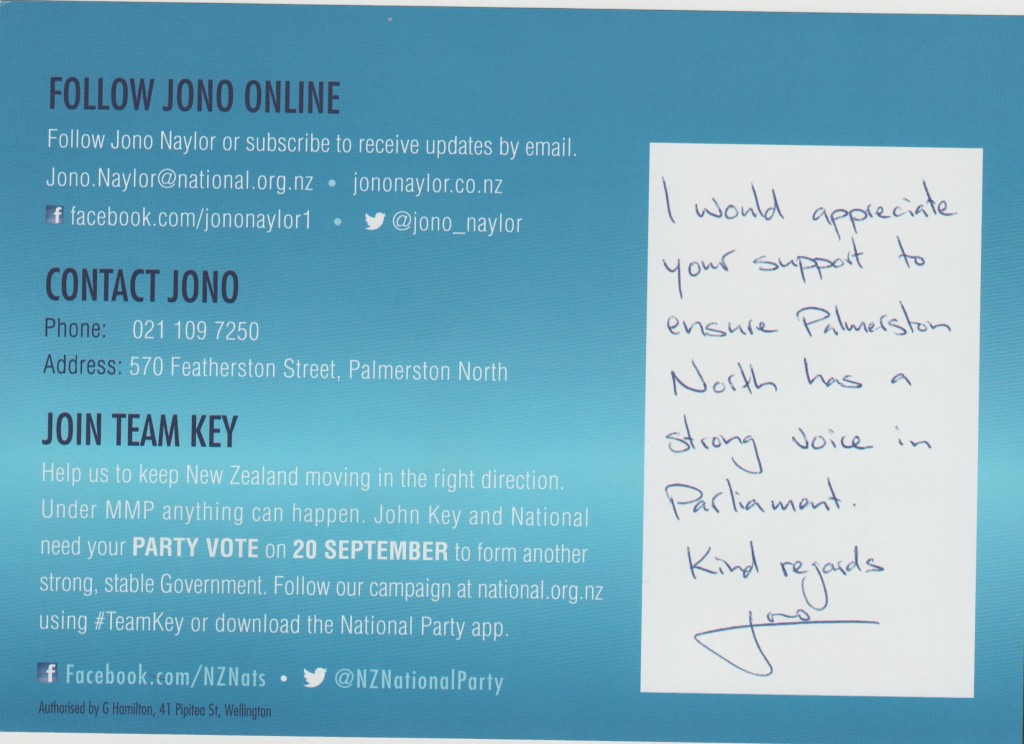 FOLLOW JONO ONLINE
Follow Jono Naylor or subscribe to receive updates by email.
Jono.Naylor@national.org.nz • jononaylor.co.nz
facebook.com/jononaylor1 • @jono_naylor
CONTACT JONO
Phone: 021 109 7250
Address: 570 Featherston Street, Palmerston North
JOIN TEAM KEY
Help us to keep New Zealand moving in the right direction.
Under MMP anything can happen. John Key and National
need your PARTY VOTE on 20 SEPTEMBER to form another
strong, stable Government. Follow our campaign at national.org.nz
using #TeamKey or download the National Party app.
Facebook.com/NZNats • @NZNationalParty
Authorised by G Hamilton, 41 Pipitea St, Wellington
I would appreciate
your support to
ensure Palmerston
North has a
strong voice in
Parliament.
Kind regards
Jono